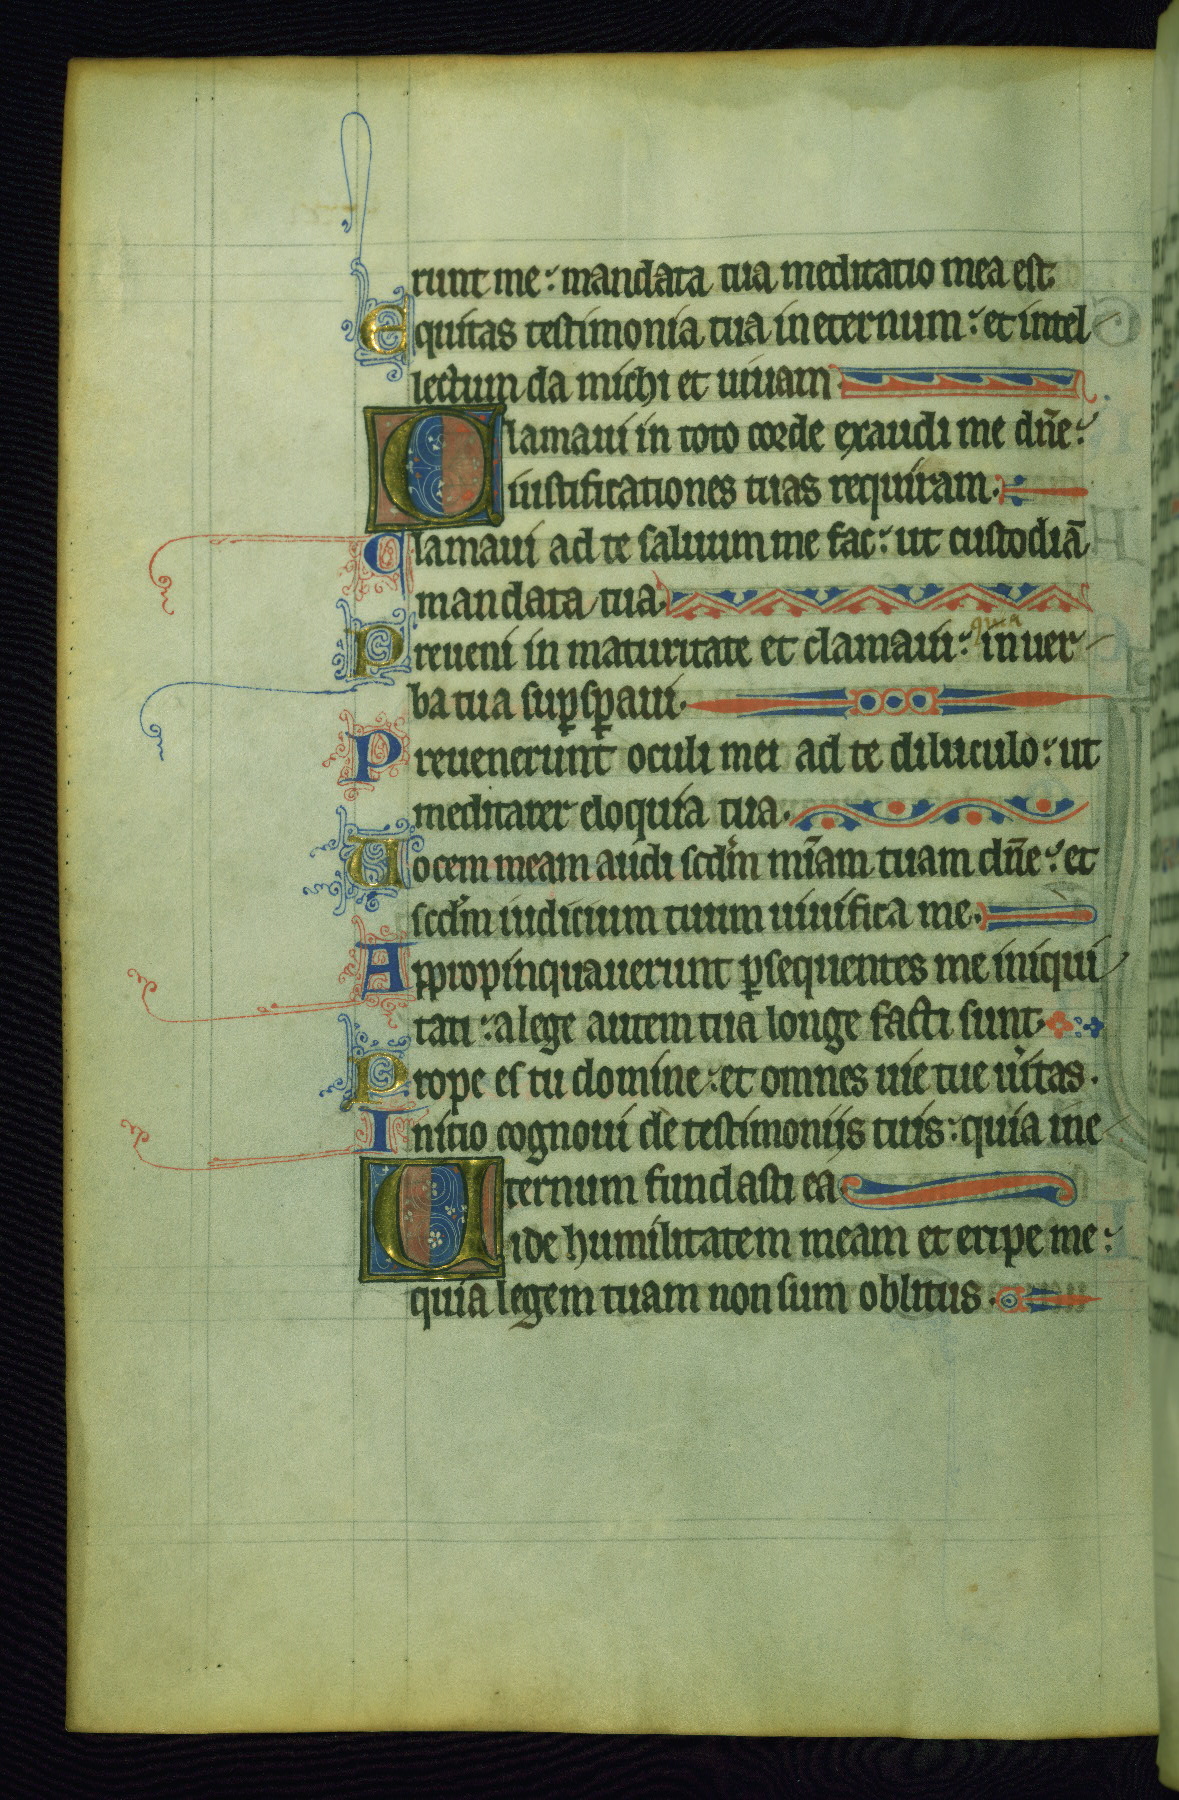 runt me: mandata tua meditatio mea est
Equitas testimonia tua in eternum: et intel
lectum da michi et uiuam.
Clamaui in toto corde exaudi me dn̄e:
iustificationes tuas requiram.
Clamaui ad te saluum me fac: ut custodiā
mandata tua.
quia
Preueni in maturitate et clamaui: in uer
ba tua sup̱sp̱aui.
Preuenerunt oculi mei ad te diluculo: ut
meditarer eloquia tua.
Uocem meam audi scdm̄ mīam tuam dn̄e: et
scdm̄ iudicium tuum uiuifica me.
Appropinquauerunt p̱sequentes me iniqui
tati: a lege autem tua longe facti sunt.
Prope es tu domine: et omnes uie tue ūitas.
Initio cognoui de testimoniis tuis: quia ine
ternum fundasti ea.
Uide humilitatem meam et eripe me:
quia legem tuam non sum oblitus.